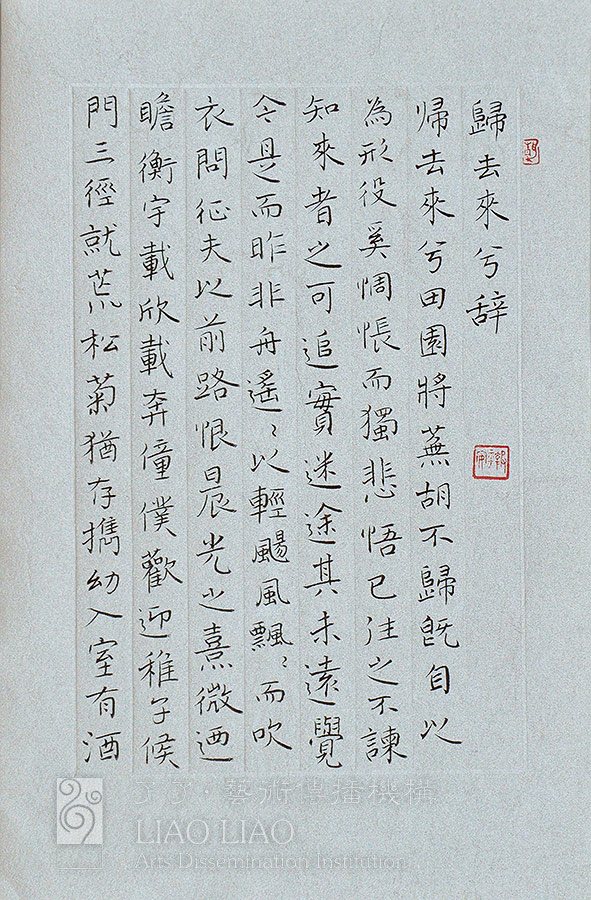 歸去來兮辭
帰去來兮田園將蕪胡不歸旣自以
為形役奚惆悵而獨悲悟已往之不諫
知來者之可追實迷途其未遠覺
今是而昨非舟遙〻以輕颺風飄〻而吹
衣問征夫以前路恨晨光之熹微迺
瞻衡宇載欣載奔僮僕歡迎稚子候
門三徑就荒松菊猶存攜幼入室有酒
了了·藝術傳播機構
LIAO LIAO
Arts Dissemination Institution